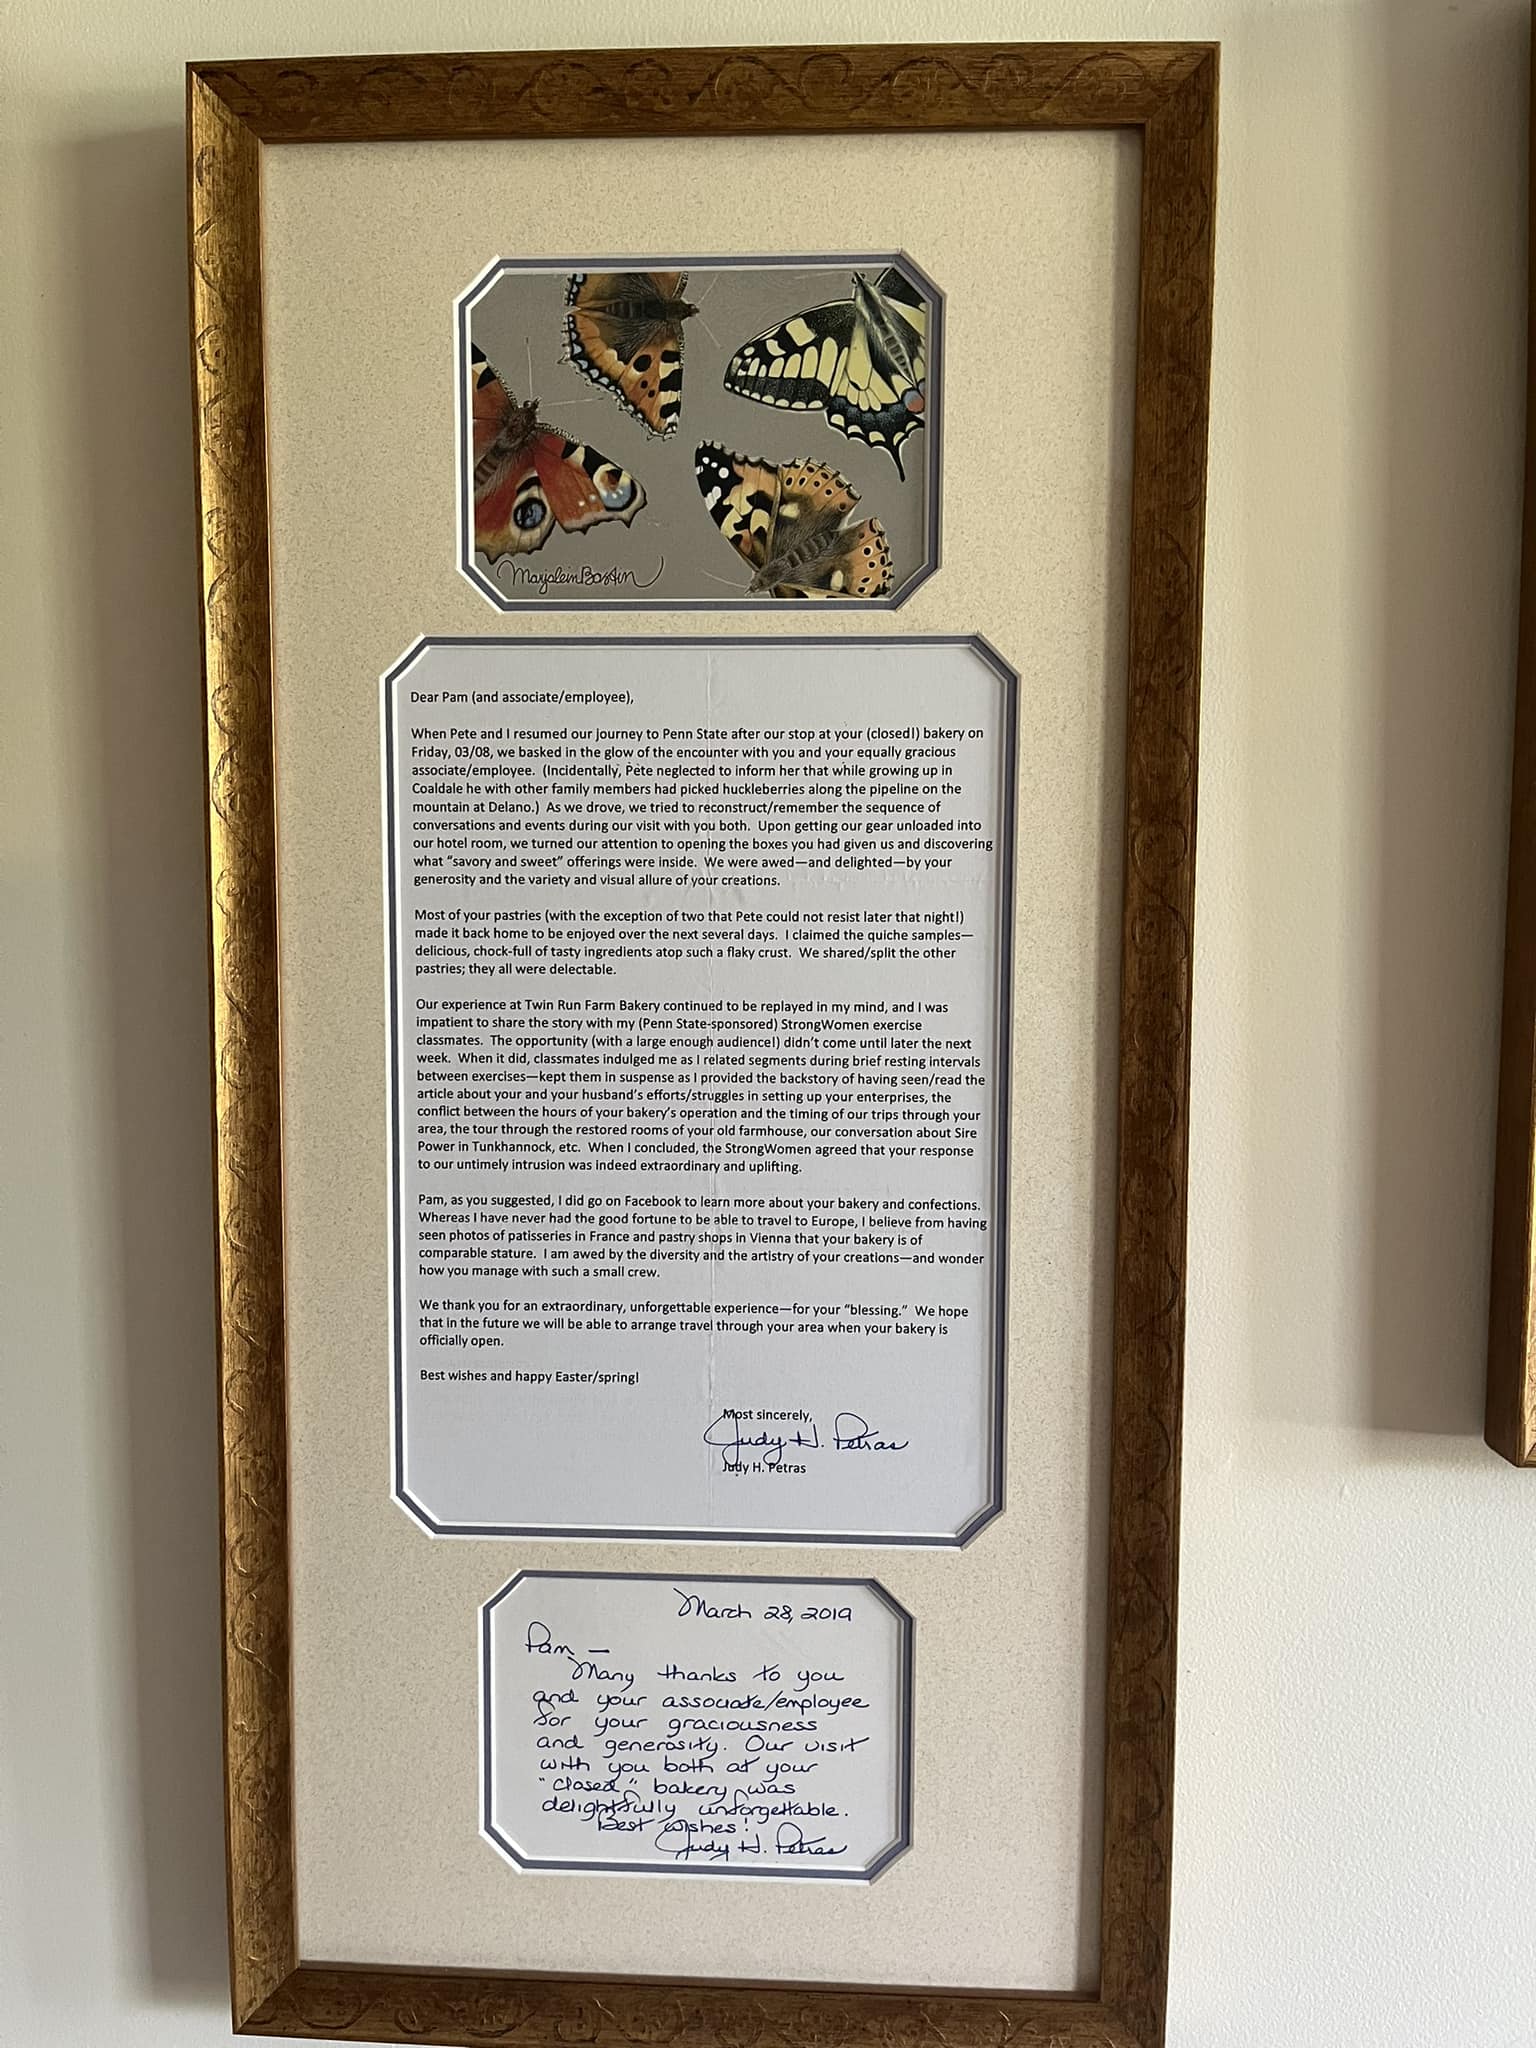 Marjolein Bastin
Dear Pam (and associate/employee),
When Pete and I resumed our journey to Penn State after our stop at your (closed!) bakery on
Friday, 03/08, we basked in the glow of the encounter with you and your equally gracious
associate/employee.  (Incidentally, Pete neglected to inform her that while growing up in
Coaldale he with other family members had picked huckleberries along the pipeline on the
mountain at Delano.)  As we drove, we tried to reconstruct/remember the sequence of
conversations and events during our visit with you both.  Upon getting our gear unloaded into
our hotel room, we turned our attention to opening the boxes you had given us and discovering
what “savory and sweet” offerings were inside.  We were awed—and delighted—by your
generosity and the variety and visual allure of your creations.
Most of your pastries (with the exception of two that Pete could not resist later that night!)
made it back home to be enjoyed over the next several days.  I claimed the quiche samples—
delicious, chock-full of tasty ingredients atop such a flaky crust.  We shared/split the other
pastries; they all were delectable.
Our experience at Twin Run Farm Bakery continued to be replayed in my mind, and I was
impatient to share the story with my (Penn State-sponsored) StrongWomen exercise
classmates.  The opportunity (with a large enough audience!) didn’t come until later the next
week.  When it did, classmates indulged me as I related segments during brief resting intervals
between exercises—kept them in suspense as I provided the backstory of having seen/read the
article about your and your husband’s efforts/struggles in setting up your enterprises, the
conflict between the hours of your bakery’s operation and the timing of our trips through your
area, the tour through the restored rooms of your old farmhouse, our conversation about Sire
Power in Tunkhannock, etc.  When I concluded, the StrongWomen agreed that your response
to our untimely intrusion was indeed extraordinary and uplifting.
Pam, as you suggested, I did go on Facebook to learn more about your bakery and confections.
Whereas I have never had the good fortune to be able to travel to Europe, I believe from having
seen photos of patisseries in France and pastry shops in Vienna that your bakery is of
comparable stature.  I am awed by the diversity and the artistry of your creations—and wonder
how you manage with such a small crew.
We thank you for an extraordinary, unforgettable experience—for your “blessing.”  We hope
that in the future we will be able to arrange travel through your area when your bakery is
officially open.
Best wishes and happy Easter/spring!
Most sincerely,
Judy H. Petras
Judy H. Petras
March 28, 2019
Pam —
Many thanks to you
and your associate/employee
for your graciousness
and generosity. Our visit
with you both at your
"closed" bakery was
delightfully unforgettable.
Best wishes!
Judy H. Petras